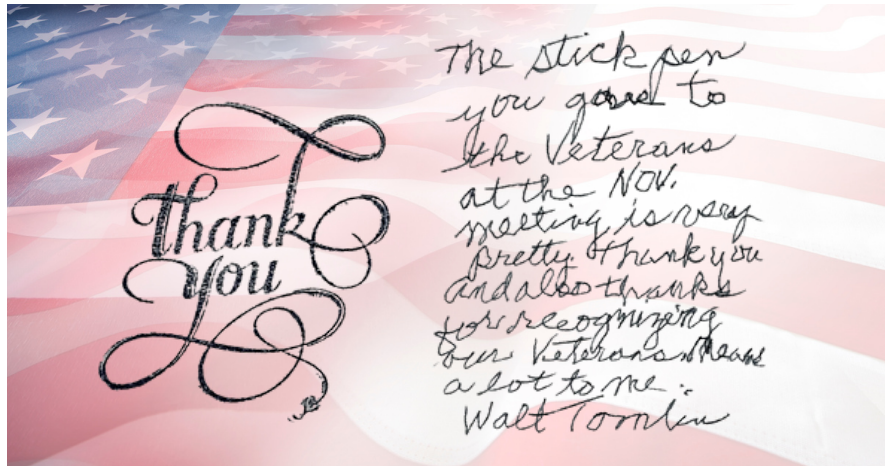 thank
you
The stick pen
you gave to
the Veterans
at the NOV.
meeting is very
pretty. Thank you
and also thanks
for recognizing
our Veterans. Means
a lot to me.
Walt Tomlin